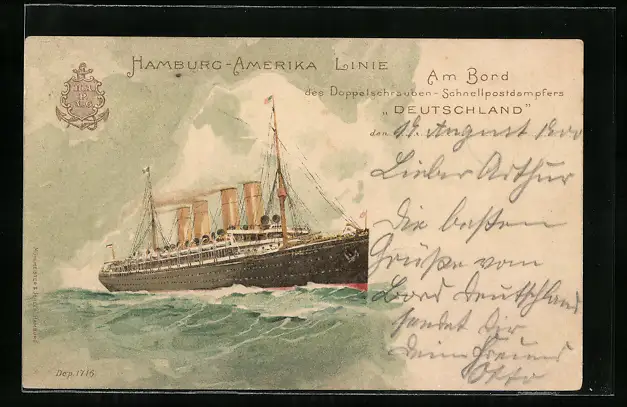 HAMBURG-AMERIKA LINIE
Am Bord
des Doppelschrauben-Schnellpostdampfers
„DEUTSCHLAND"
den 19. August 1900
Lieber Arthur
Die besten
Grüße vom
Bord Deutschland
sendet Dir
Dein Freund
Otto
Dep. 1716.